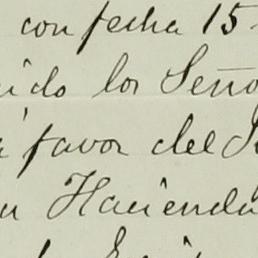 con fecha 15
ido los Seño
a favor del
Hacienda